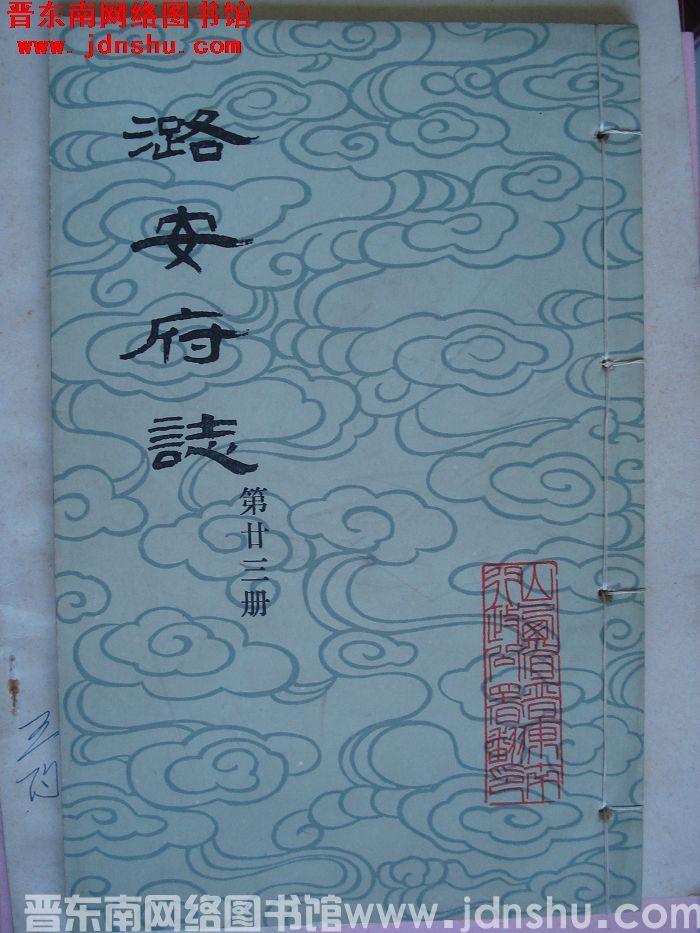 晋东南网络图书馆
www.jdnshu.com
潞安府誌
第廿三册
山西省晋东南
行政公署翻印
晋东南网络图书馆www.jdnshu.com